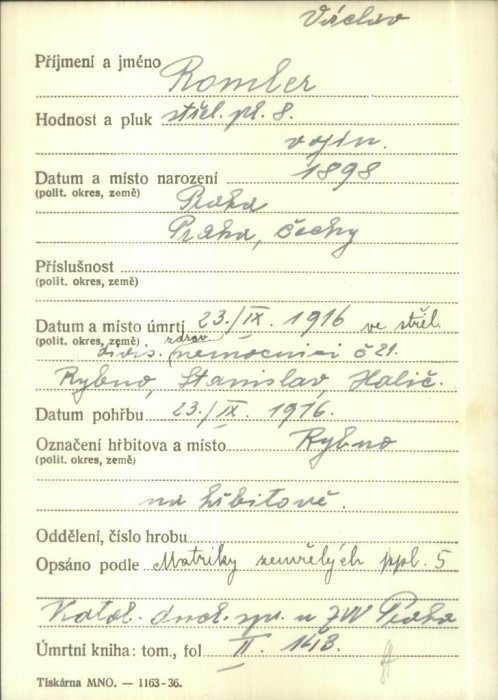 Václav
Příjmení a jméno Romler
Hodnost a pluk střel. pl. 8.
vojín.
Datum a místo narození 1898
(polit. okres, země) Praha
Praha, Čechy
Příslušnost
(polit. okres, země)
Datum a místo úmrtí 23./IX. 1916 ve střel.
(polit. okres, země) zdrav.
divis. nemocnici č 21.
Rybno, Stanislav, Halič.
Datum pohřbu 23./IX. 1916.
Označení hřbitova a místo Rybno
(polit. okres, země)
na hřbitově.
Oddělení, číslo hrobu
Opsáno podle Matriky zemřelých ppl. 5
Katol. duch. spr. u ZVV Praha
Úmrtní kniha: tom., fol II. 143.
Tiskárna MNO. — 1163-36.